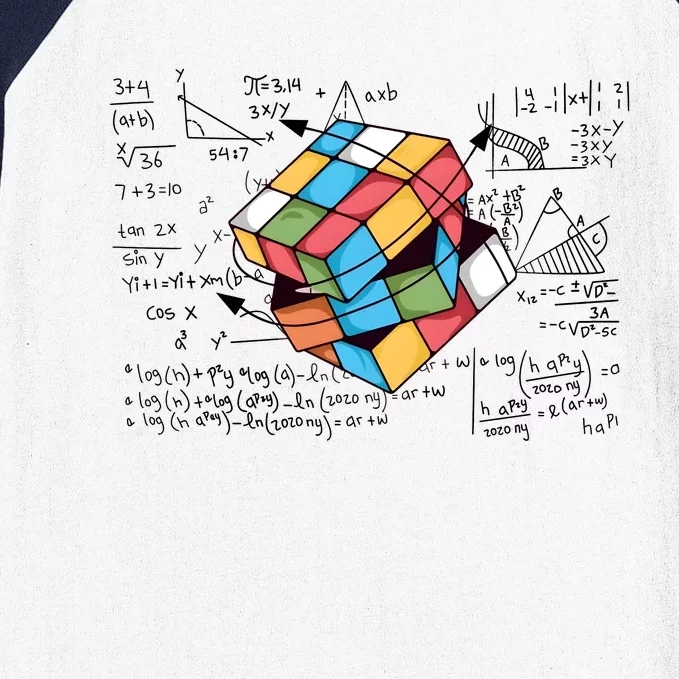 3+4
(a+b)
x√36
7+3=10
tan 2x
sin y
Yi+1=Yi+xm(b-a
cos x
a³
y²
y
x
54:7
π=3,14
+
axb
3x/y
a²
(y+
y
x-
|4 1|x+|1 2|
-2 -1 1 1
-3x-y
-3xy
=3xy
y
A
B
= Ax²+B²
= A(-B²)
A
B
A
C
x₁₂=-c ±√D²-
3A
=-c√D²-5c
a log(h)+p²y alog(a)-ln(2
ar+w
a log(h)+alog(aᵖ²ʸ)-ln(2020 ny)=ar+w
a log(h aᵖ²ʸ)-ln(2020 ny)=ar+w
a log(h aᵖ²ʸ)=a
2020 ny
h aᵖ²ʸ=e(ar+w)
2020 ny